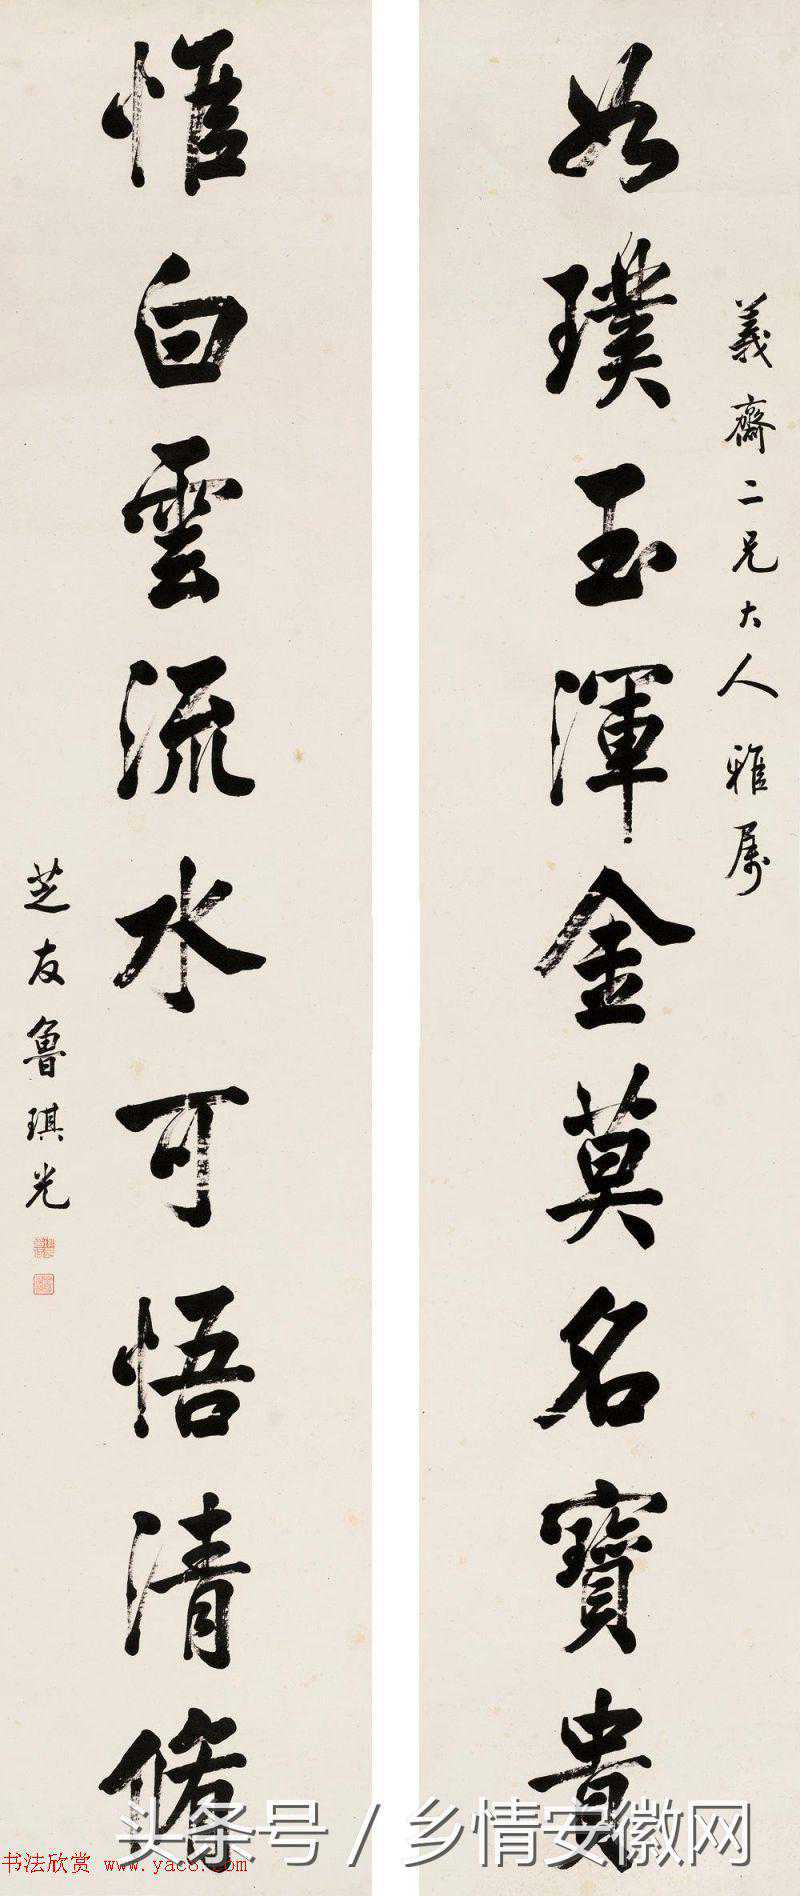 義齋二兄大人雅属
如璞玉渾金莫名寶貴
惟白雲流水可悟清脩
芝友魯琪光
头条号 / 乡情安徽网
书法欣赏 www.yac8.com